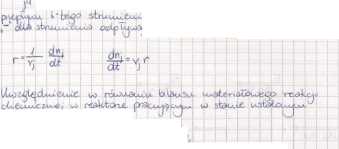 i-tego strumienia
"-" dla strumienia odpływa
r = 1/νj dnj/dt    dnj/dt = νj r
Uwzględnienie w równaniu bilansu materiałowego reakcji
chemicznej w reaktorze pracującym w stanie ustalonym